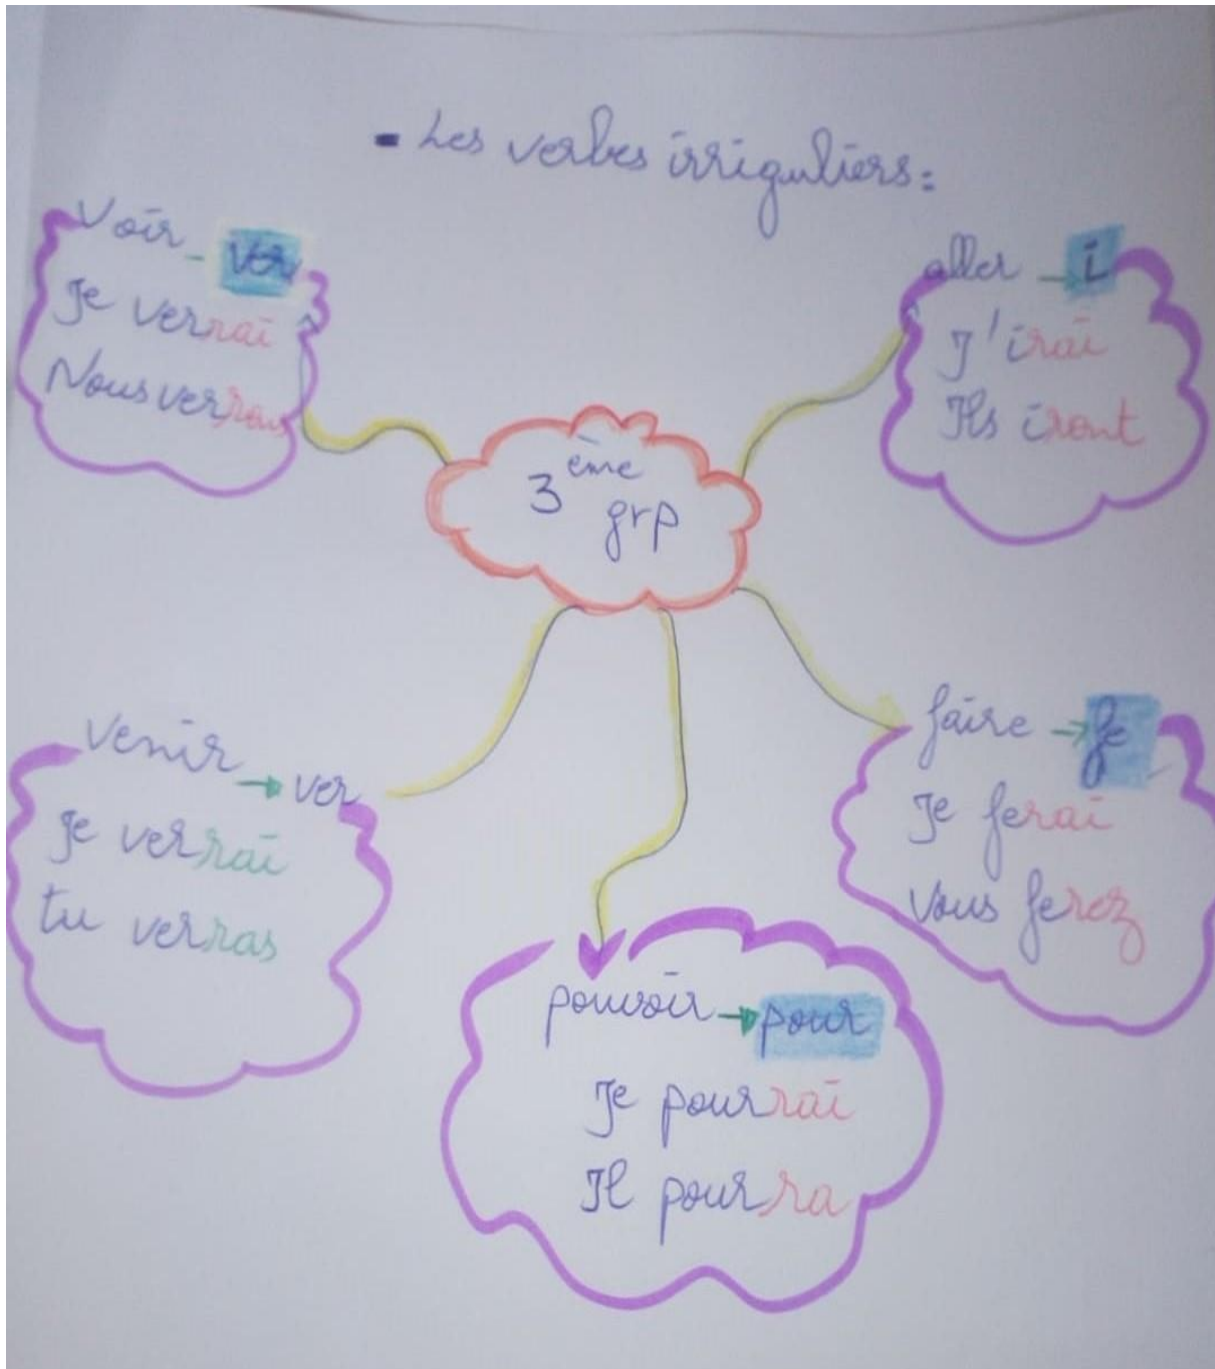 - Les verbes irriguliers:
Voir - ver
Je verrai
Nous verrons
aller → i
J'irai
Ils iront
3ème grp
venir → ver
Je verrai
tu verras
faire → fe
Je ferai
Vous ferez
pouvoir → pour
Je pourrai
Il pourra